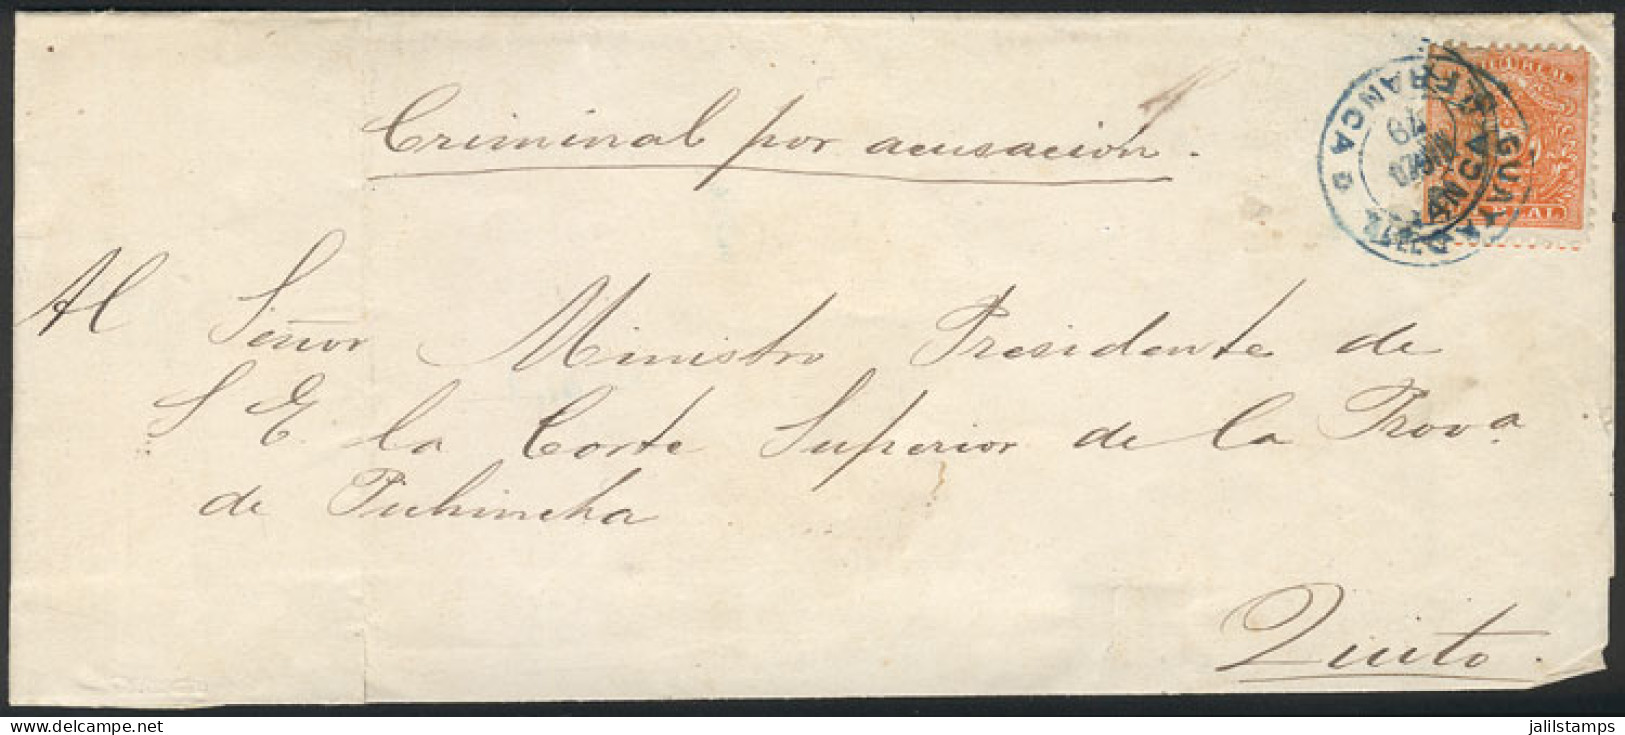 Criminal por acusación.
Al Señor Ministro Presidente de
S. E. la Corte Superior de la Prova.
de Pichincha
Quito.
GUAYAQUIL
FRANCA
FRANCA
79
REAL
jalilstamps